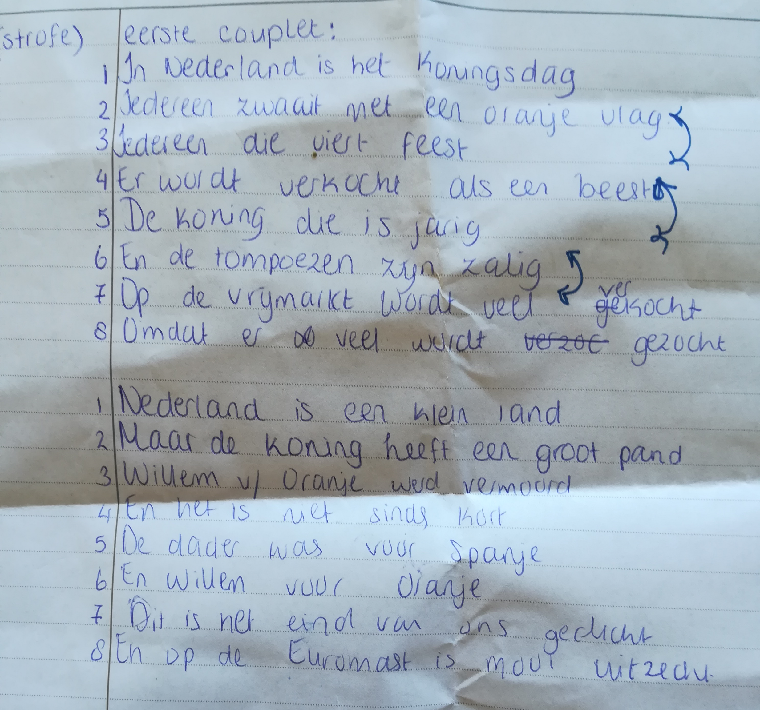 (strofe) eerste couplet:
1 In Nederland is het Koningsdag
2 Iedereen zwaait met een oranje vlag
3 Iedereen die viert feest
4 Er wordt verkocht als een beest
5 De koning die is jarig
6 En de tompoezen zijn zalig
7 Op de vrijmarkt wordt veel verkocht
8 Omdat er veel wordt gezocht
1 Nederland is een klein land
2 Maar de koning heeft een groot pand
3 Willem v/ Oranje werd vermoord
4 En het is niet sinds kort
5 De dader was voor Spanje
6 En Willen voor Oranje
7 Dit is het eind van ons gedicht
8 En op de Euromast is mooi uitzicht